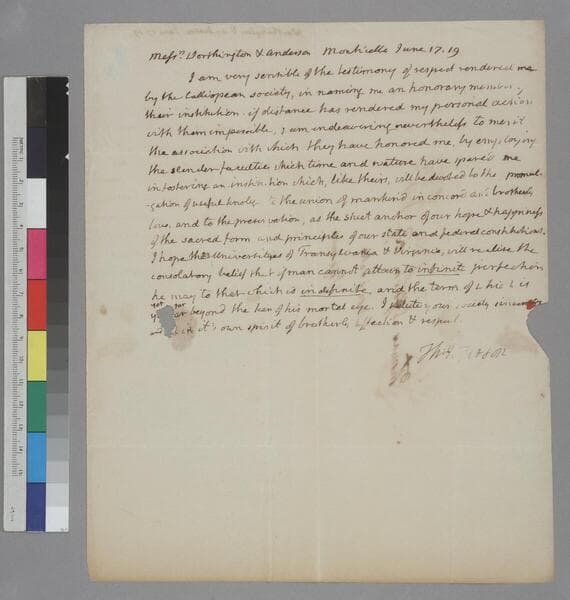 Messrs Worthington & Anderson Monticello June 17. 19
I am very sensible of the testimony of respect rendered me
by the Calliopean society, in naming me an honorary member of
their institution. if distance has rendered my personal action
with them impossible, I am endeavoring nevertheless to merit
the association with which they have honored me, by employing
the slender faculties which time and nature have spared me
in fostering an institution which, like theirs, will be devoted to the promul-
-gation of useful knolege to the union of mankind in concord and brotherly
love, and to the preservation, as the sheet anchor of our hope & happiness
of the sacred form and principles of our state and federal constitutions.
I hope the Universities of Transylvania & Virginia, will realise the
consolatory belief that if man cannot attain to infinite perfection
he may to that which is indefinite, and the term of which is
yet far beyond the ken of his mortal eye. I salute your society
in it's own spirit of brotherly affection & respect.
Th: Jefferson